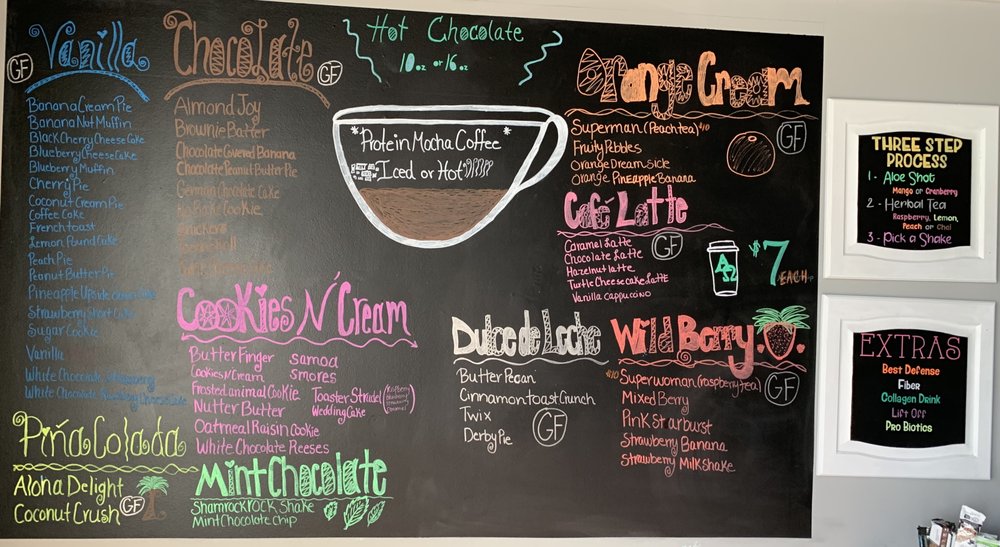 Vanilla
GF
Banana Cream Pie
Banana Nut Muffin
Black Cherry Cheese Cake
Blueberry Cheese Cake
Blueberry Muffin
Cherry Pie
Coconut Cream Pie
Coffee Cake
French toast
Lemon Pound Cake
Peach Pie
Peanut Butter Pie
Pineapple Upside Down Cake
Strawberry Short Cake
Sugar Cookie
Vanilla
White Chocolate Strawberry
White Chocolate Raspberry Cheese Cake
Piña Colada
Aloha Delight
Coconut Crush
GF
Chocolate
GF
Almond Joy
Brownie Batter
Chocolate Covered Banana
Chocolate Peanut Butter Pie
German Chocolate Cake
Cookie
Cookies N' Cream
Butter Finger
Cookies N Cream
Frosted animal Cookie
Nutter Butter
Oatmeal Raisin Cookie
White Chocolate Reeses
samoa
smores
Toaster Strudel
Wedding Cake
Mint Chocolate
Shamrock ROCK Shake
Mint Chocolate chip
Hot Chocolate
10oz or 16oz
*Protein Mocha Coffee*
Iced or Hot
Orange Cream
GF
Superman (Peach tea) $10
Fruity Pebbles
Orange Dream sicle
Orange Pineapple Banana
Café Latte
GF
Caramel Latte
Chocolate Latte
Hazelnut latte
Turtle Cheesecake Latte
Vanilla Cappuccino
$7
EACH
Dulce de Leche
Butter Pecan
Cinnamon toast Crunch
Twix
Derby Pie
GF
Wild Berry
GF
$10 Superwoman (raspberry tea)
Mixed Berry
Pink Starburst
Strawberry Banana
Strawberry Milkshake
THREE STEP
PROCESS
1 - Aloe Shot
Mango or Cranberry
2 - Herbal Tea
Raspberry, Lemon,
Peach or Chai
3 - Pick a Shake
EXTRAS
Best Defense
Fiber
Collagen Drink
Lift Off
Pro Biotics